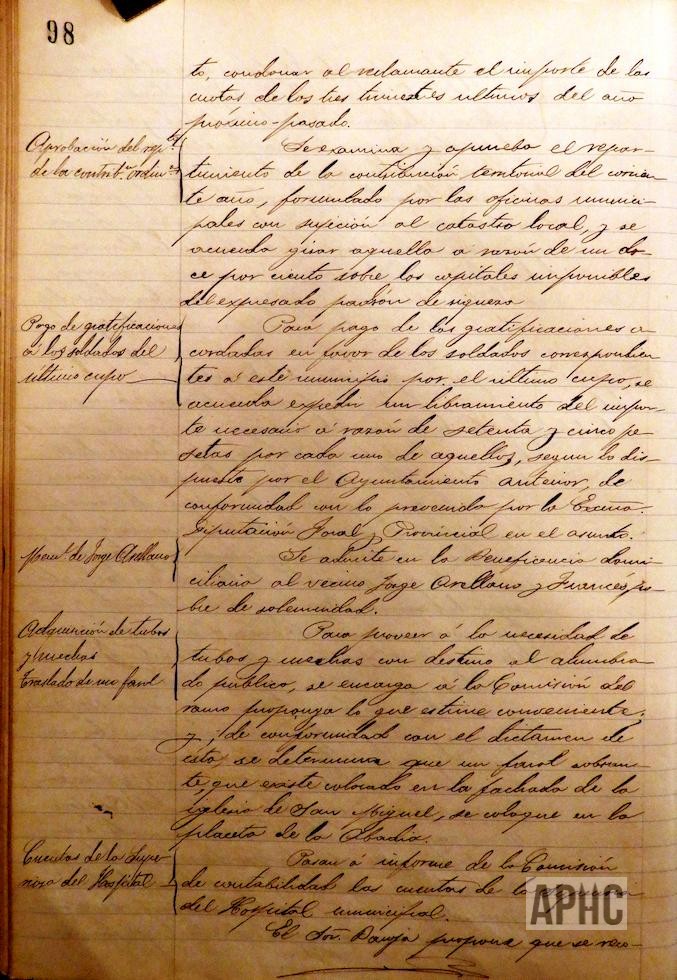 98
to, condonar al reclamante el importe de las
cuotas de los tres trimestres ultimos del año
próximo-pasado.
Aprobación del rep.to
de la contrib.n ordin.a
Se examina y aprueba el repar-
timiento de la contribución territorial del corrien-
te año, formulado por las oficinas munici-
pales con sujeción al catastro local, y se
acuerda girar aquella a razón de un do-
ce por ciento sobre los capitales imponibles
del expresado padrón de riqueza
Pago de gratificaciones
a los soldados del
ultimo cupo
Para pago de las gratificaciones a-
cordadas en favor de los soldados correspondien-
tes á este municipio por el ultimo cupo, se
acuerda expedir un libramiento del impor-
te necesario á razón de setenta y cinco pe-
setas por cada uno de aquellos, segun lo dis-
puesto por el Ayuntamiento anterior, de
conformidad con lo prevenido por la Excma.
Diputación Foral y Provincial en el asunto.
de Jorge Arellano
Se admite en la Beneficencia domi-
ciliaria al vecino Jorge Arellano y Frances, po-
bre de solemnidad.
Adquisición de tubos
y mechas
Traslado de un farol
Para proveer á la necesidad de
tubos y mechas con destino al alumbra-
do publico, se encarga á la Comisión del
ramo proponga lo que estime conveniente;
y, de conformidad con el dictamen de
ésta, se determina que un farol sobran-
te, que existe colocado en la fachada de la
iglesia de San Miguel, se coloque en la
placeta de la Abadia.
Cuentas de la Supe-
riora del Hospital
Pasan á informe de la Comisión
de contabilidad las cuentas de la
del Hospital municipal.
El Sor. propone que se reco-
APHC